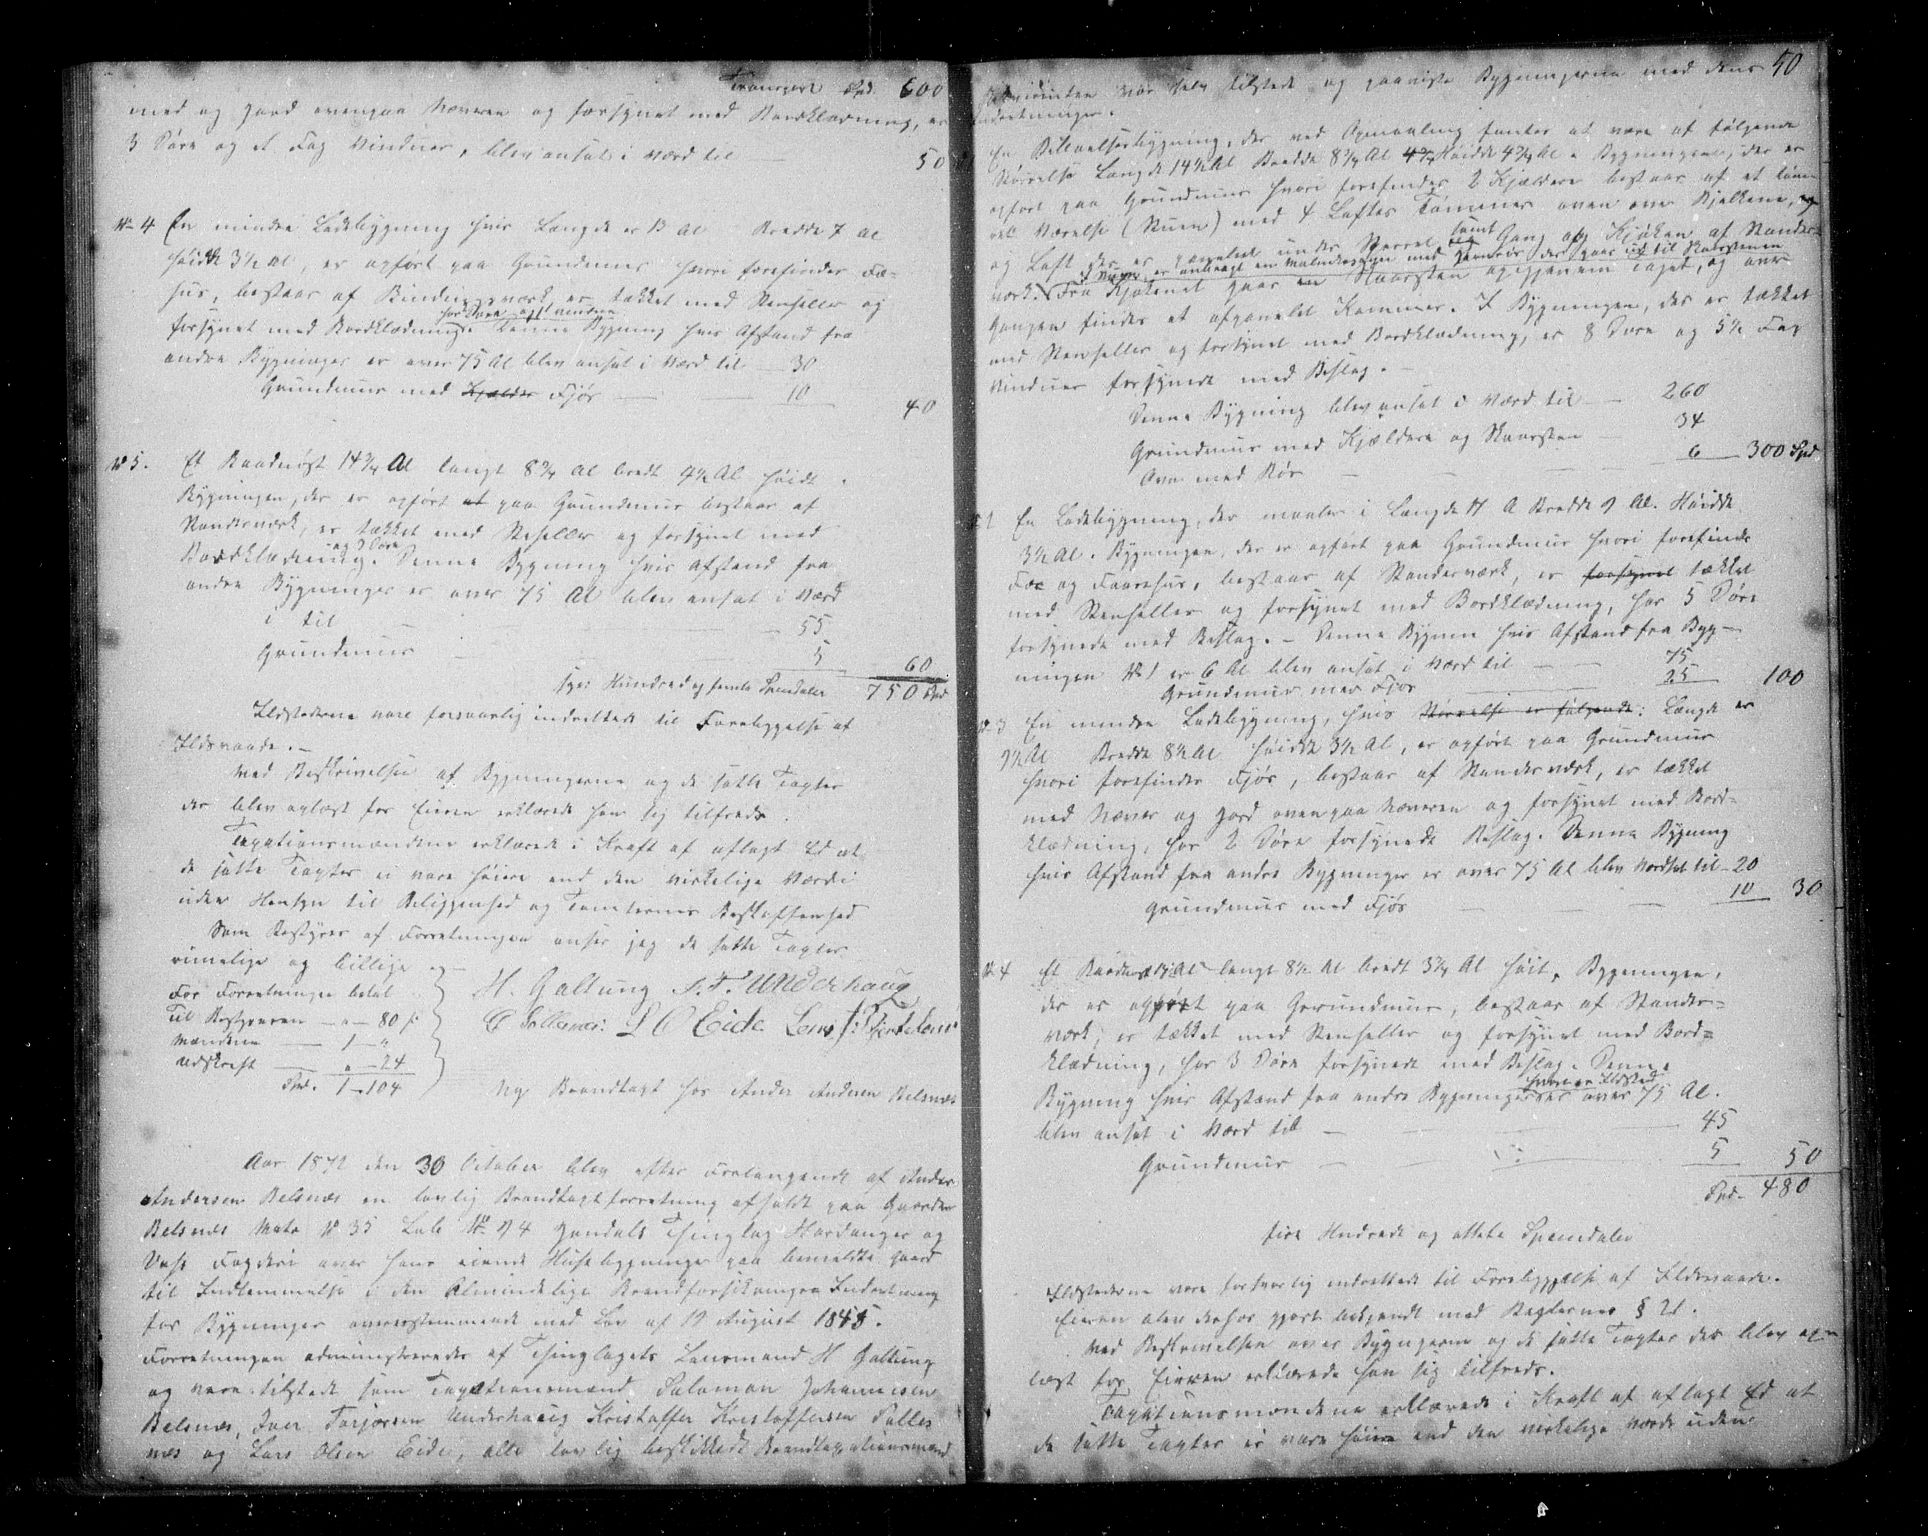 Transport Spd. 600
med og Jord ovenpaa Næveren og forsynet med Bordklædning, er
3 Døre og et Fag Vinduer, blev ansat i Værd til 50
No 4 En mindre Ladebygning hvis Længde er 13 Al Bredde 7 Al
Høide 3½ Al, er opført paa Grundmuur hvori forefindes Fæ-
hus, bestaar af Bindingsværk, er tækket med Stenheller og
forsynet med Bordklædning. Denne Bygning hvis Afstand fra
andre Bygninger er over 75 Al blev ansat i Værd til 30
Grundmuur med Kjælder Fjøs 10
40
No 5. Et Baadnøst 14¾ Al langt 8¾ Al bredt 4½ Al høidt.
Bygningen, der er opført at paa Grundmuur bestaar af
Standerværk, er tækket med Steheller og forsynet med
og 3 Døre
Bordklædning. Denne Bygning hvis Afstand fra
andre Bygninger er over 75 Al blev ansat i Værd
i til 55
Grundmuur 5 60
syv Hundred og femti Speciedaler 750 Spd
Ildstederne vare forsvarlig indrettede til Forebyggelse af
Ildsvaade.
Med Beskrivelsen af Bygningerne og de satte Taxter
der blev oplæst for Eieren erklærede han sig tilfreds.
Taxationsmændene erklærede i Kraft af aflagt Ed at
de satte Taxter ei vare høiere end den virkelige Værdi
uden Hensyn til Beliggenhed og Tomternes Beskaffenhed
Som Bestyrer af Forretningen anser jeg de satte Taxter
rimelige og billige
For Forretningen betal
Til Bestyreren " 80 s
Mændene 1 "
Udskrift " 24
Spd. 1 - 104
H. Galtung I. T. Underhaug
L O Eide
Ny Brandtaxt hos Anders Andersen Belsnæs
Aar 1872 den 30 October blev efter Forlangende af Anders
Andersen Belsnæs en lovlig Brandtaxtforretning afholdt paa Gaarden
Belsnæs Matr No 35 Løb No 94 Jondals Thinglag Hardanger og
Voss Fogderi over hans eiende Husebygninger paa bemeldte Gaard
til Indlemmelse i den Almindelige Brandforsikrings Indretning
for Bygninger overensstemmende med Lov af 19 August 1845.
Forretningen administreredes af Thinglagets Lensmand H Galtung
og vare tilstede som Taxationsmænd Salomon Johannesen
Belsnæs, Iver Torjersen Underhaug Kristoffer Kristoffersen Solles
næs og Lars Olsen Eide, alle lovlig beskikkede Brandtaxationsmænd
50
Rekvirenten var selv tilstede og paaviste Bygningerne med dens
Indretninger.
En Beboelsesbygning, der ved Opmaaling fandtes at være af følgende
Størrelse Længde 14½ Al Bredde 8¾ Al 4¾ Høide 4¾ Al. Bygningen, der er
opført paa Grundmuur hvori forefindes 2 Kjældere bestaar af et tøm-
ret Værelse (Stuen) med 4 Loftes Tømmer oven over Bjelkene,
samt
og Loft der er panelet under Sperret og Gang og Kjøken af Stander-
I Stuen er anbragt en Malmkakelovn med Jernrør der gaar ud til Skorstenen
værk. Fra Kjøkenet gaar en Skorsten opigjennem Taget, og over
Gangen findes et afpanelet Kammer. I Bygningen, der er tækket
med Stenheller og forsynet med Bordklædning, er 8 Døre og 5½ Fag
Vinduer forsynede med Beslag.
Denne Bygning blev ansat i Værd til 260
Grundmuur med Kjældere og Skorsten 34
Ovn med Rør 6 300 Spd
En Ladebygning, der maaler i Længde 17 A Bredde 9 Al. Høide
3½ Al. Bygningen, der er opført paa Grundmuur hvori forefindes
Fæ og Faarehus, bestaar af Standerværk, er forsynet tækket
med Stenheller og forsynet med Bordklædning, har 5 Døre
forsynede med Beslag. - Denne Bygnin hvis Afstand fra Byg-
ningen No 1 er 6 Al blev ansat i Værd til 75
Grundmuur med Fjøs 25 100
No 3 En mindre Ladebygning, hvis Størrelse er følgende: Længde er
9½ Al Bredde 8½ Al Høide 3½ Al, er opført paa Grundmuur
hvori forefindes Fjøs, bestaar af Standerværk, er tækket
med Næver og Jord ovenpaa Næveren og forsynet med Bord-
klædning, har 2 Døre forsynede Beslag. Denne Bygning
hvis Afstand fra andre Bygninger er over 75 Al blev Værdsat til 20
Grundmuur med Fjøs 10 30
No 4 Et Baadnøst langt 8½ Al bredt 3¾ Al høit. Bygningen,
der er opført paa Grundmuur, bestaar af Stander-
værk, er tækket med Stenheller og forsynet med Bord-
klædning, har 3 Døre forsynede med Beslag. Denne
hvori er Ildsted
Bygning hvis Afstand fra andre Bygninger er over 75 Al.
blev ansat i Værd til 45
Grundmuur 5 50
Spd. 480
fire Hundrede og ottete Speciedaler
Ildstederne vare forsvarlig indrettede til Forebyggelse af Ildsvaade.
Eieren blev derhos gjort bekjendt med Reglernes § 21.
Med Beskrivelsen over Bygngerne og de satte Taxter der blev op-
læst for Eieren erklærede han sig tilfreds.
Taxationsmændene erklærede i Kraft af aflagt Ed at
de satte Taxter ei vare høiere end den virkelige Værdi uden